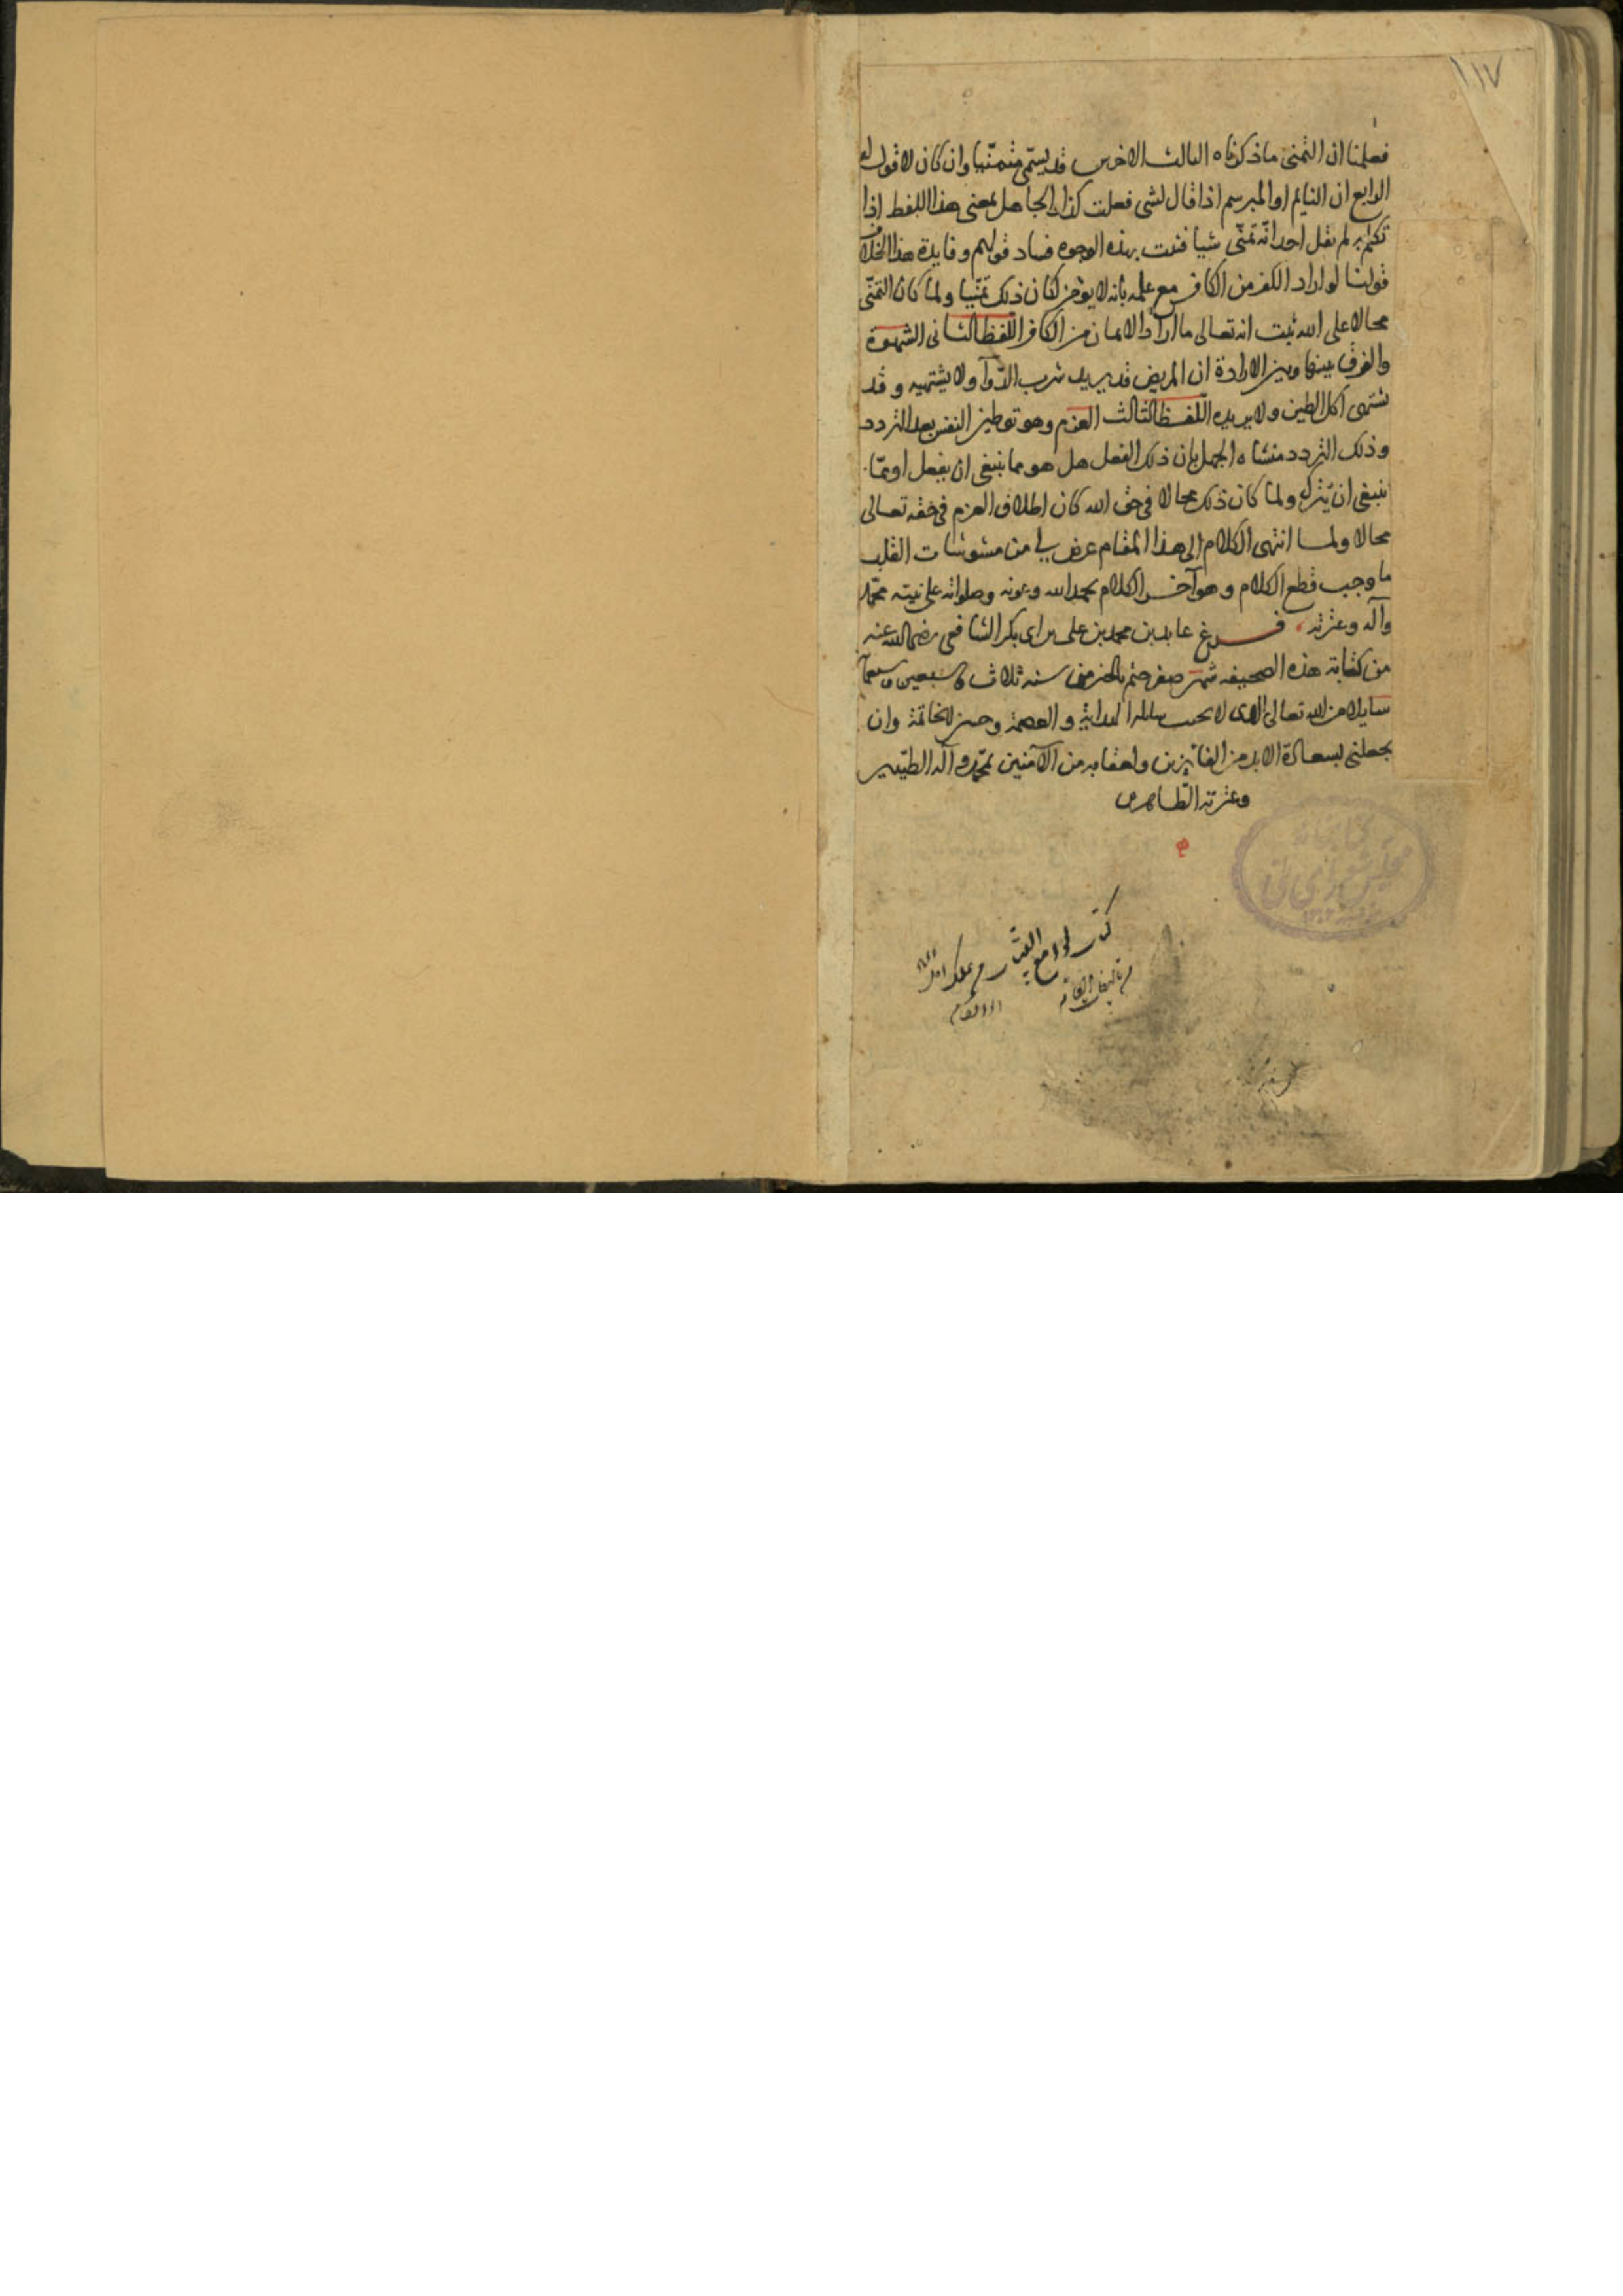 ١١٧
فعلمنا ان التمنى ما ذكرناه الثالث الاخرس قد يسمّى متمنّيا وان كان لا قول له
الرابع ان النايم او المبرسم اذا قال لشى فعلت كذا والجاهل بمعنى هذا اللفظ اذا
تكلم به لم يقل احد انّه تمنّى شيا فثبت بهذه الوجوه فساد قولهم وفايدة هذا الخلاف
قولنا لو اراد الكفر من الكافر مع علمه بانه لا يؤمن لكان ذلك تمنّيا ولمّا كان التمنّى
محالا على الله ثبت انه تعالى ما اراد الايمان من الكافر اللفظ الثانى الشهوة
والفرق بينها وبين الارادة ان المريض قد يريد شرب الدّوآ ولا يشتهيه وقد
يشتهى اكل الطين ولا يريده اللفظ الثالث العزم وهو توطين النفس بعد التردد
وذلك التردد منشاه الجهل بان ذلك الفعل هل هو مما ينبغى ان يفعل او ممّا
ينبغى ان يترك ولمّا كان ذلك محالا فى حق الله كان اطلاق العزم فى حقه تعالى
محالا ولما انتهى الكلام الى هذا المقام عرض لى من مشوشات القلب
ما وجب قطع الكلام وهو آخر الكلام بحمد الله وعونه وصلواته على نبيّه محمّد
وآله وعترته فرغ عابد بن محمد بن على بن ابى بكر الشافعى رضى الله عنه
من كتابة هذه الصحيفه شهر صفر ختم بالخير من سنه ثلاث وسبعين وسبعمآ
سايلا من الله تعالى الذى لا يخيب سايله الهداية والعصمة وحسن الخاتمة وان
يجعلنى بسعادة الابد من الفائزين ولعقابه من الآمنين بمحمّد وآله الطيّبين
وعترته الطّاهرين
كتابخانه
مجلس شورای ملی
كتاب لوامع البينات